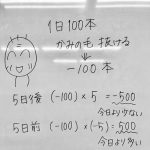 1日100本
かみの毛 抜ける
-100本
5日後 (-100) × 5 = -500
今日より少ない
5日前 (-100) × (-5) = 500
今日より多い